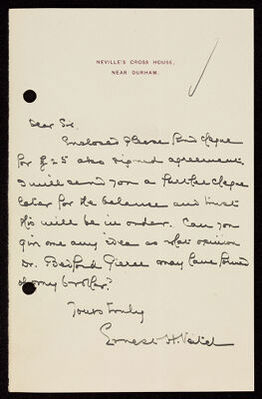 NEVILLE'S CROSS HOUSE,
NEAR DURHAM.
Dear Sir.
Enclosed please find cheque
for £25 also signed agreement
I will send you a further cheque
later for the balance and trust
this will be in order. Can you
give one any idea as what opinion
Dr. Bedford Pierce may have formed
of my brother?
Yours truly
Ernest H.